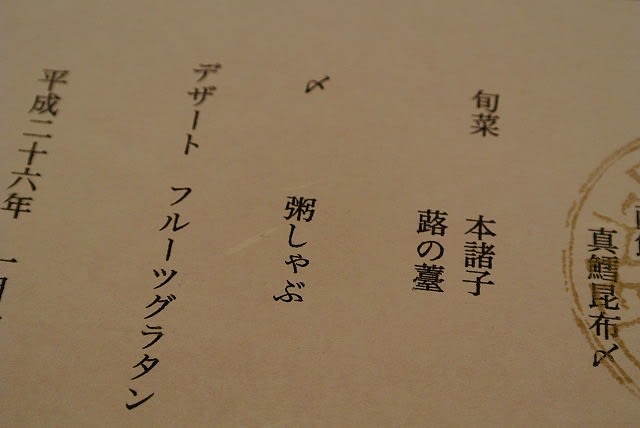 真鱈昆布〆
旬菜 本諸子
蕗の薹
〆 粥しゃぶ
デザート フルーツグラタン
平成二十六年 一月